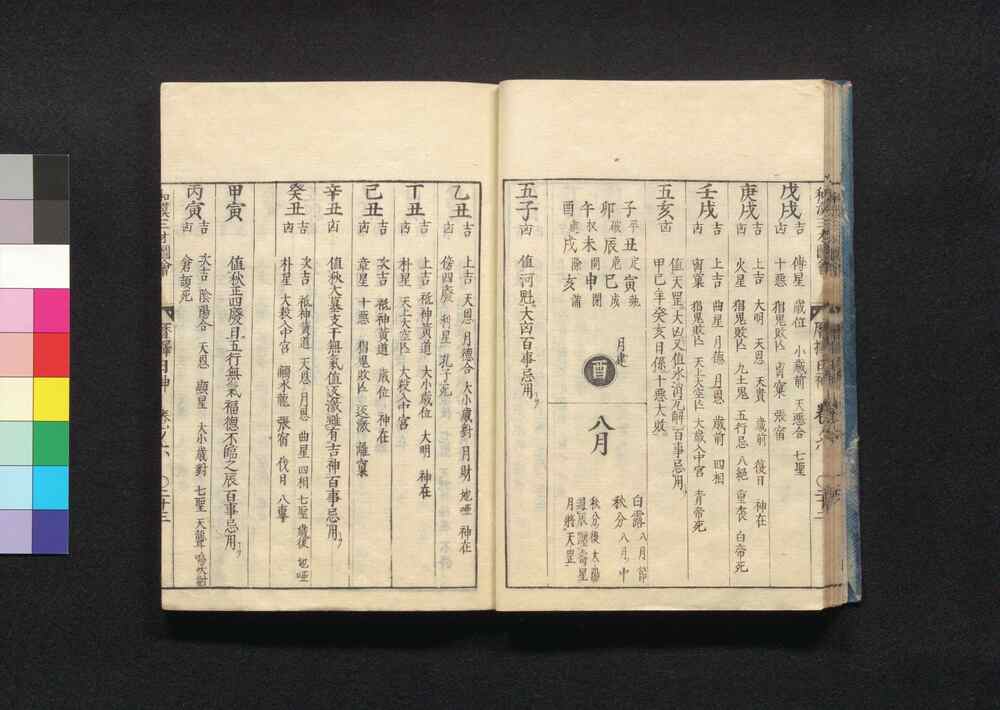 戊戌 吉 傳星 歳位 小歳前 天恩合 七聖
凶 十悪 猖鬼敗亡 離窠 張宿
庚戌 吉 上吉 大明 天恩 天貴 歳前 復日 神在
凶 火星 猖鬼敗亡 九土鬼 五行忌 八絶 重喪 白帝死
壬戌 吉 上吉 曲星 月德 月恩 歳前 四相
凶 離窠 猖鬼敗亡 天上大空亡 大歳入中宮 青帝死
五亥 凶 値天罡大凶又値氷消瓦解百事忌用
甲己年癸亥日係十悪大敗
子平丑定寅執
卯破辰危巳成
午收未開申閉
酉建戌除亥滿
月建
酉
八月
白露八月節
秋分八月中
秋分後太陽
月將天罡
五子 凶 値河魁大凶百事忌用
乙丑 吉 上吉 天恩 月德合 大小歳對 月財 地啞 神在
凶 傍四廢 利星 孔子死
丁丑 吉 上吉 祗神黃道 大小歳位 大明 神在
凶 朴星 天上大空亡 大殺入中宮
己丑 吉 次吉 祗神黃道 歳位 神在
凶 章星 十悪 猖鬼敗亡 逐激 離窠
辛丑 凶 値秋大墓支干無氣値逐激雖有吉神百事忌用
癸丑 吉 次吉 祗神黃道 天恩 月恩 曲星 四相 七聖 歳後 地啞
凶 朴星 大殺入中宮 觸水龍 張宿 伐日 八專
甲寅 値秋正四廢日五行無氣福德不臨之辰百事忌用
丙寅 吉 次吉 陰陽合 天恩 顯星 大小歳對 七聖 天聾 鳴吠對
凶 倉頡死